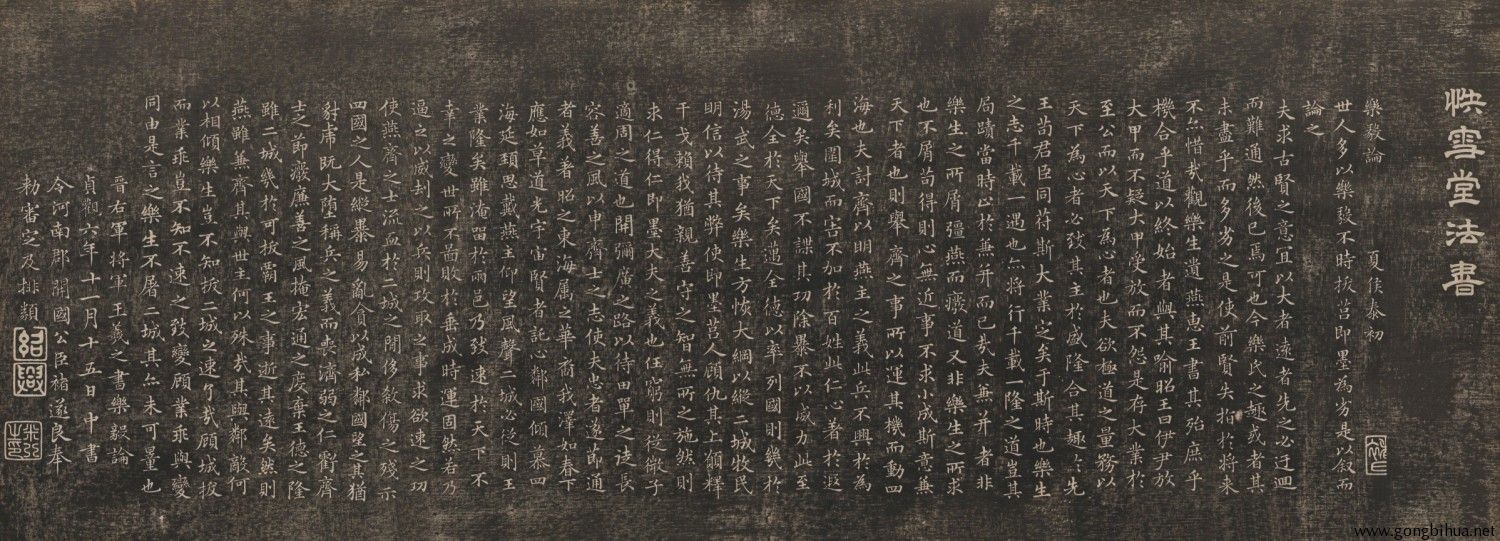 快雪堂法書
樂毅論　夏侯泰初
世人多以樂毅不時拔莒即墨為劣是以叙而
論之
夫求古賢之意宜以大者遠者先之必迂迴
而難通然後已焉可也今樂氏之趣或者其
未盡乎而多劣之是使前賢失指於將來
不亦惜哉觀樂生遺燕惠王書其殆庶乎
機合乎道以終始者與其喻昭王曰伊尹放
大甲而不疑大甲受放而不怨是存大業於
至公而以天下為心者也夫欲極道之量務以
天下為心者必致其主於盛隆合其趣於先
王苟君臣同符斯大業定矣于斯時也樂生
之志千載一遇也亦將行千載一隆之道豈其
局蹟當時止於無并而已哉夫無并者非
樂生之所屑彊燕而廢道又非樂生之所求
也不屑苟得則心無近事不求小成斯意無
天下者也則舉齊之事所以運其機而動四
海也夫討齊以明燕主之義此兵不興於為
利矣圍城而害不加於百姓此仁心著於遐
邇矣舉國不謀其功除暴不以威力此至
德全於天下矣邁全德以率列國則幾於
湯武之事矣樂生方恢大綱以縱二城牧民
明信以待其弊使即墨莒人顧仇其上願釋
干戈賴我猶親善守之智無所之施然則
求仁得仁即墨大夫之義也任窮則從微子
適周之道也開彌廣之路以待田單之徒長
容善之風以申齊士之志使夫忠者遂節通
者義著昭之東海属之華裔我澤如春下
應如草道光宇宙賢者託心鄰國傾慕四
海延頸思戴燕主仰望風聲二城必從則王
業隆矣雖淹留於兩邑乃致速於天下不
幸之變世所不圖敗於垂成時運固然若乃
逼之以威劫之以兵則攻取之事求欲速之功
使燕齊之士流血於二城之閒侈殺傷之殘示
四國之人是縱暴易亂貪以成私鄰國望之其猶
豺虎既大墮稱兵之義而喪濟弱之仁虧齊
士之節廢廉善之風掩宏通之度棄王德之隆
雖二城幾於可拔霸王之事逝其遠矣然則
燕雖兼齊其與世主何以殊哉其與鄰敵何
以相傾樂生豈不知拔二城之速了哉顧城拔
而業乖豈不知不速之致變顧業乖與變
同由是言之樂生不屠二城其亦未可量也
晉右軍將軍王羲之書樂毅論
貞觀六年十一月十五日中書
令河南郡開國公臣褚遂良奉
勅審定及排類
紹興
www.gongbihua.net